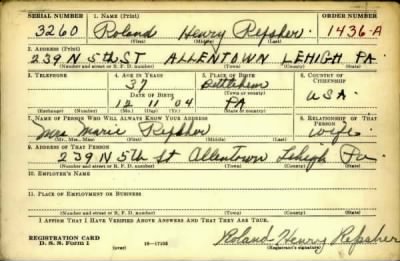 SERIAL NUMBER 1. NAME (Print) ORDER NUMBER
3260 Roland Henry Repsher 1436-A
(First) (Middle) (Last)
2. ADDRESS (Print)
239 N 5th ST ALLENTOWN LEHIGH PA.
(Number and street or R. F. D. number) (Town) (County) (State)
3. TELEPHONE 4. AGE IN YEARS 5. PLACE OF BIRTH 6. COUNTRY OF CITIZENSHIP
37 Bethlehem
DATE OF BIRTH (Town or county)
12 11 04 PA U.S.A.
(Exchange) (Number) (Mo.) (Day) (Yr.) (State or country)
7. NAME OF PERSON WHO WILL ALWAYS KNOW YOUR ADDRESS 8. RELATIONSHIP OF THAT PERSON
Mrs Marie Repsher Wife
(Mr., Mrs., Miss) (First) (Middle) (Last)
9. ADDRESS OF THAT PERSON
239 N 5th St Allentown Lehigh Pa
(Number and street or R. F. D. number) (Town) (County) (State)
10. EMPLOYER'S NAME
11. PLACE OF EMPLOYMENT OR BUSINESS
(Number and street or R. F. D. number) (Town) (County) (State)
I AFFIRM THAT I HAVE VERIFIED ABOVE ANSWERS AND THAT THEY ARE TRUE.
REGISTRATION CARD
D. S. S. Form 1 (over) 16-17105 Roland Henry Repsher
(Registrant's signature)